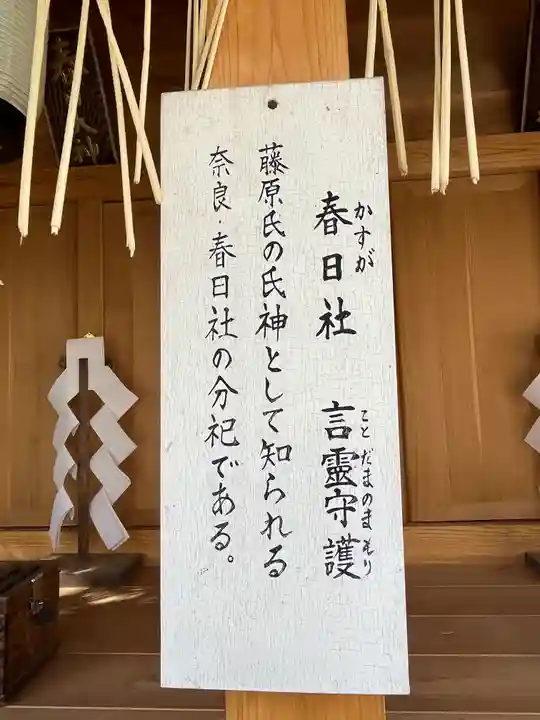 かすが
春日社 言靈守護
ことだまのまもり
藤原氏の氏神として知られる
奈良・春日社の分祀である。